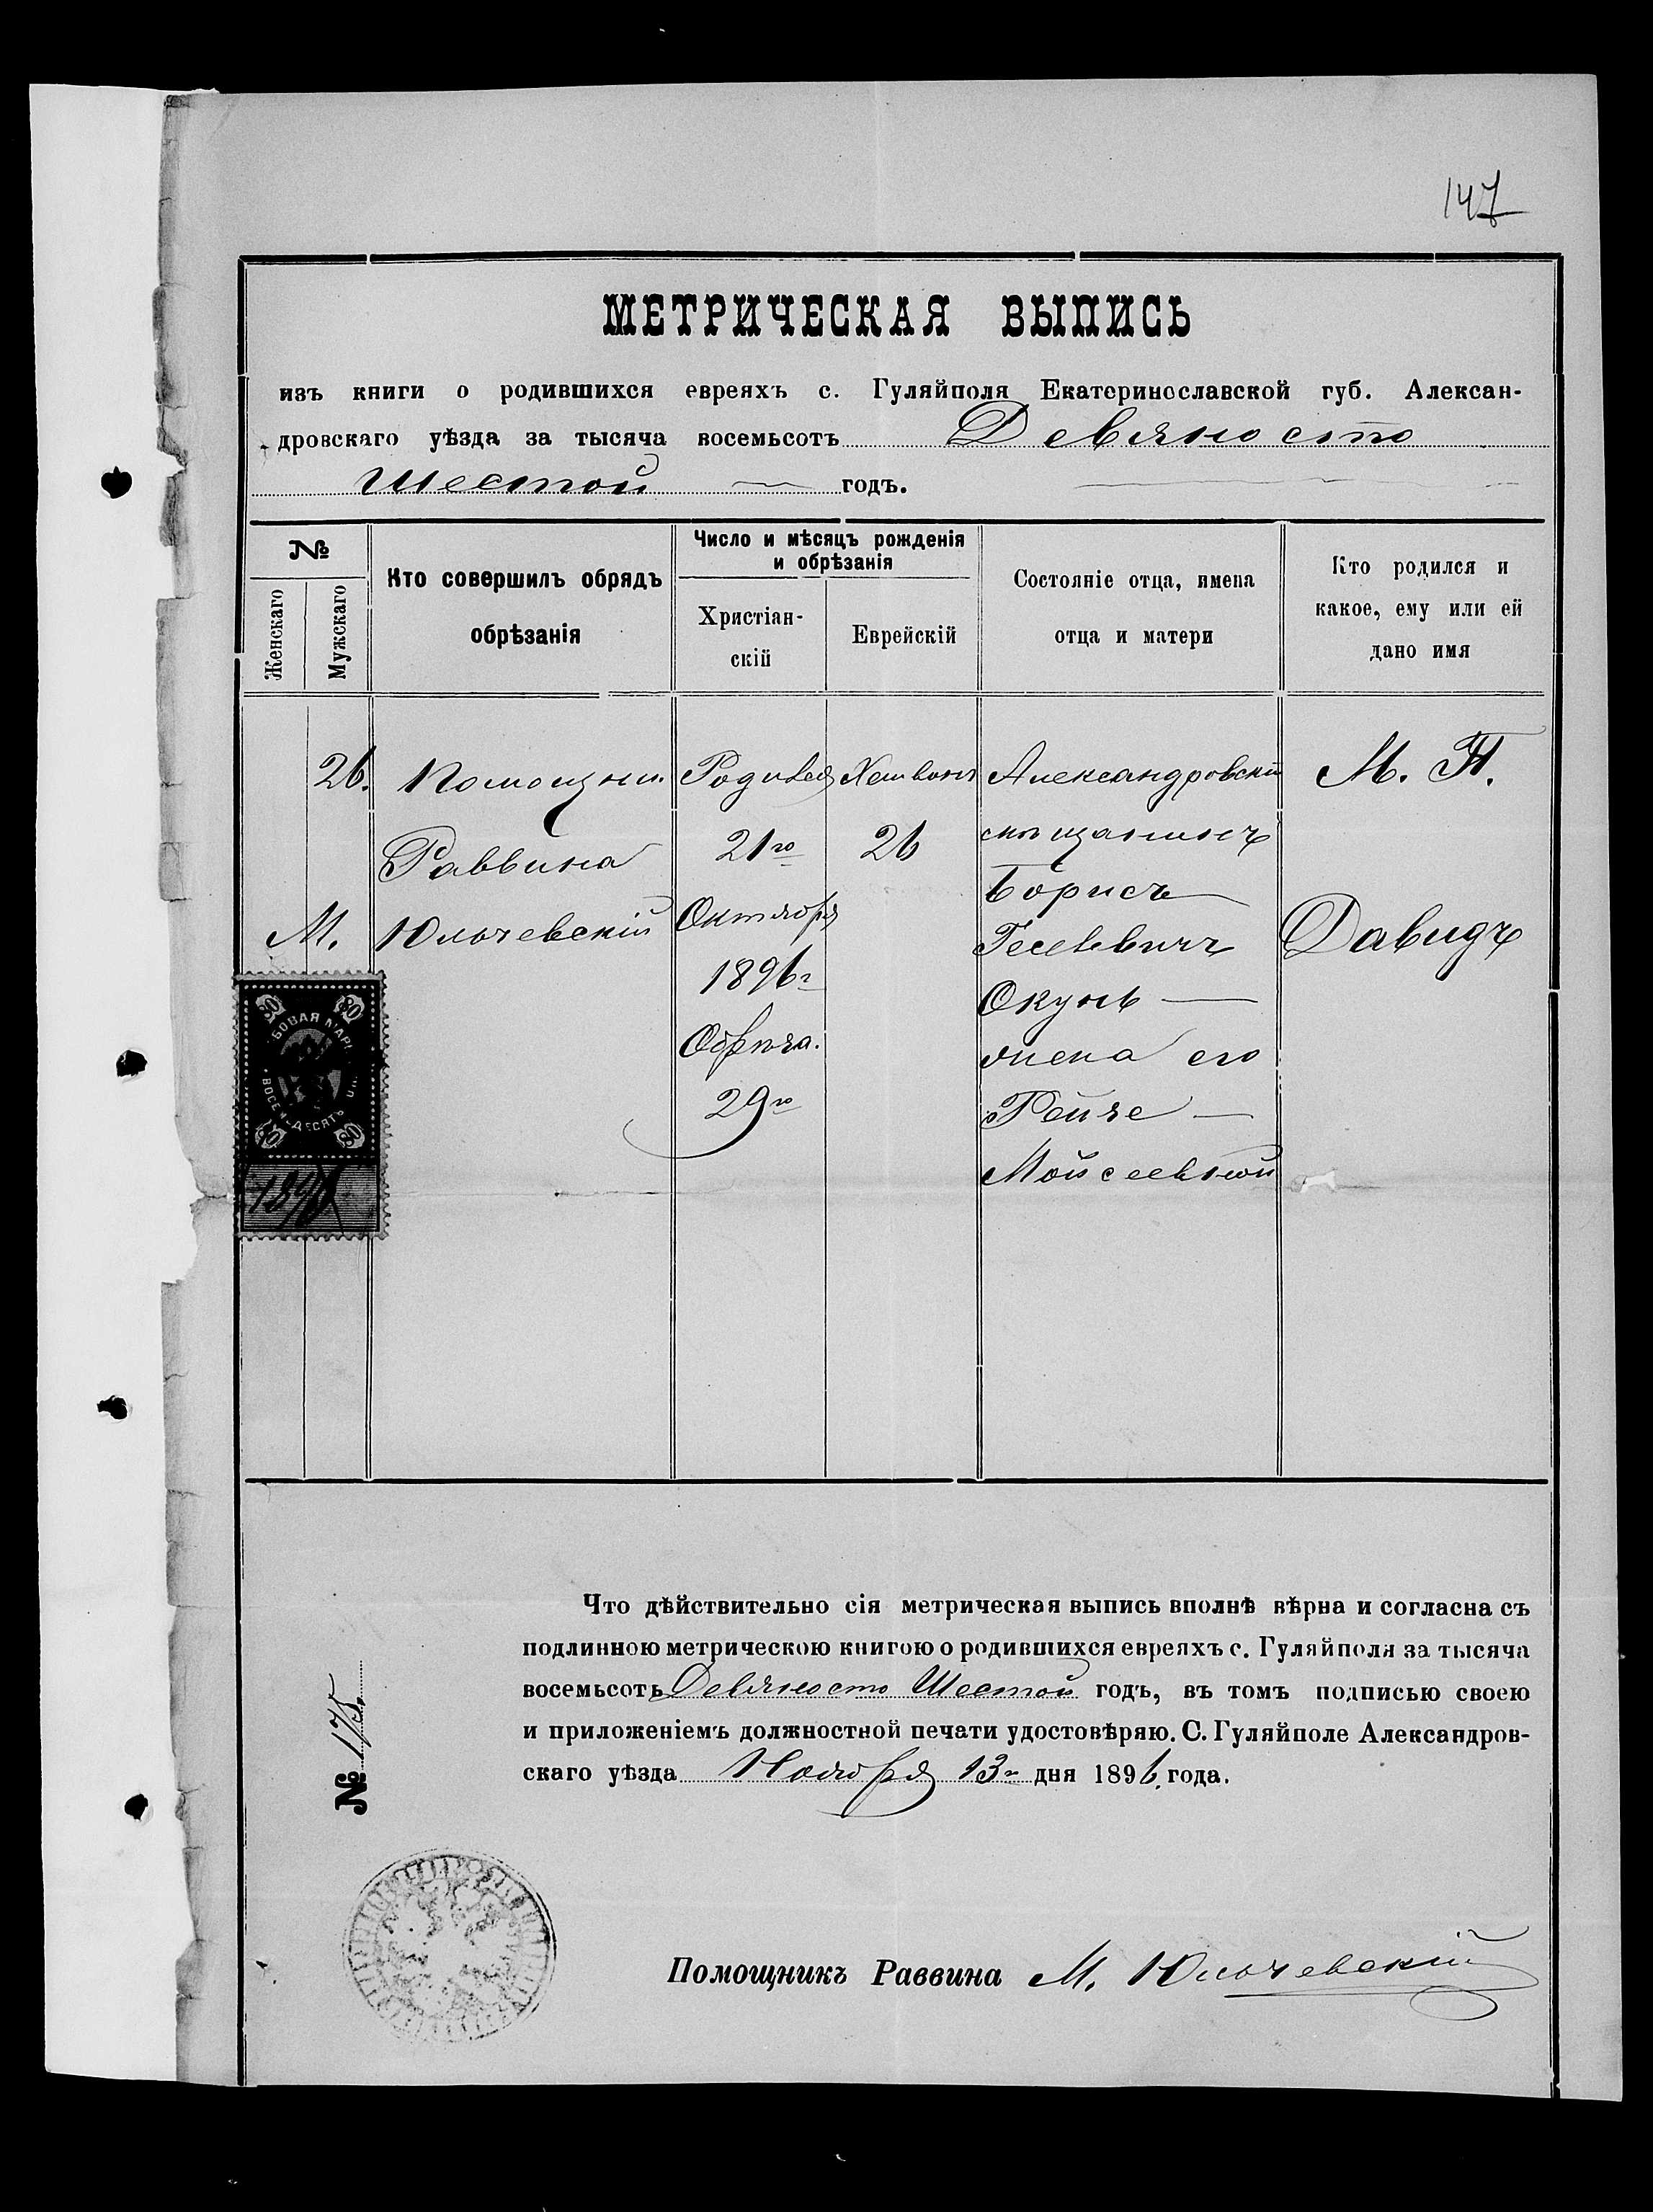 147
МЕТРИЧЕСКАЯ ВЫПИСЬ
изъ книги о родившихся евреяхъ с. Гуляйполя Екатеринославской губ. Алексан-
дровскаго уѣзда за тысяча восемьсотъ Девяносто
Шестой годъ.
№
Женскаго
Мужскаго
Кто совершилъ обрядъ
обрѣзанія
Число и мѣсяцъ рожденія
и обрѣзанія
Христіан-
скій
Еврейскій
Состояніе отца, имена
отца и матери
Кто родился и
какое, ему или ей
дано имя
26.
Помощни.
Раввина
М.
Родился
21го
Октября
1896г
Обрѣза.
29го
Хешвонъ
26
Александровскій
мѣщанинъ
Борисъ
Окунь
жена его
Рейзе
Мойсеевной
М. П.
Давидъ
80 80
ВОСЕМЬДЕСЯТЪ
80 80
1896
Что дѣйствительно сія метрическая выпись вполнѣ вѣрна и согласна съ
подлинною метрическою книгою о родившихся евреяхъ с. Гуляйполя за тысяча
восемьсотъ Девяносто Шестой годъ, въ томъ подписью своею
и приложеніемъ должностной печати удостовѣряю. С. Гуляйполе Александров-
скаго уѣзда Ноября 13го дня 1896 года.
№ 175.
Помощникъ Раввина М.